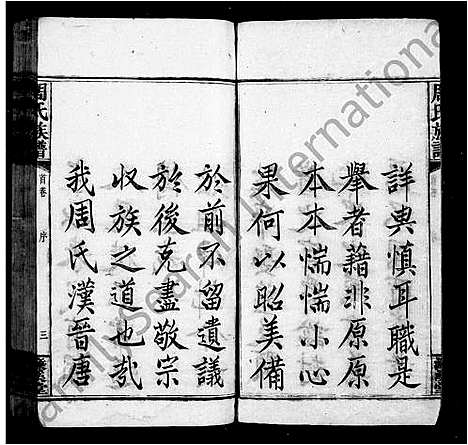 周氏族譜
詳與慎耳職是
舉者藉非原原
本本惴惴小心
果何以昭美備
於前不留遺議
於後克盡敬宗
收族之道也哉
我周氏漢晉唐
周氏族譜
首卷
序
三
FamilySearch International